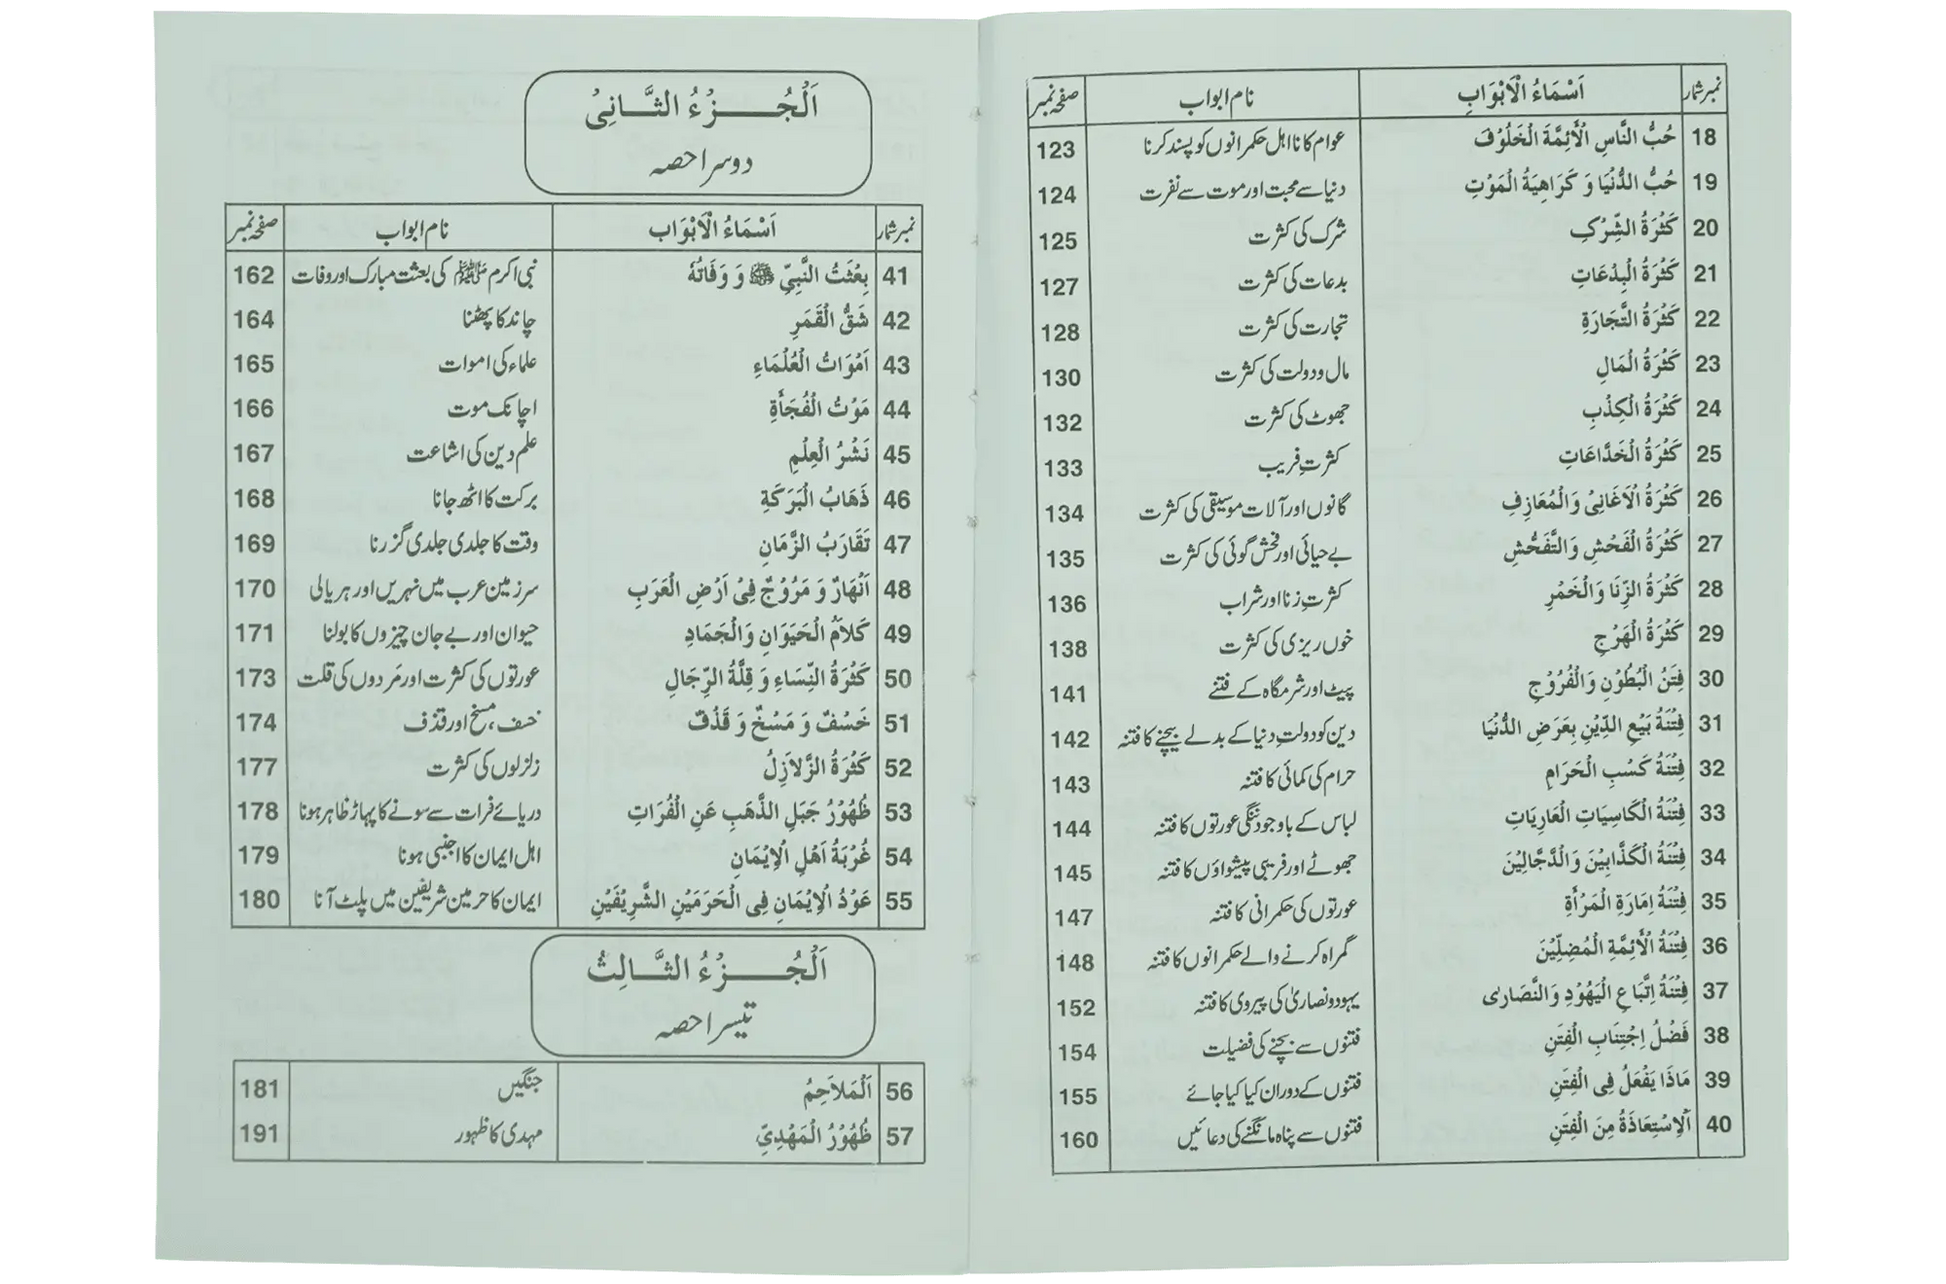 نمبر شمار اَسْمَاءُ الْاَبْوَابِ نام ابواب صفحہ نمبر
18 حُبُّ النَّاسِ الْأَئِمَّةَ الْخَلُوْفَ عوام کا نااہل حکمرانوں کو پسند کرنا 123
19 حُبُّ الدُّنْيَا وَ كَرَاهِيَةُ الْمَوْتِ دنیا سے محبت اور موت سے نفرت 124
20 كَثْرَةُ الشِّرْكِ شرک کی کثرت 125
21 كَثْرَةُ الْبِدْعَاتِ بدعات کی کثرت 127
22 كَثْرَةُ التَّجَارَةِ تجارت کی کثرت 128
23 كَثْرَةُ الْمَالِ مال و دولت کی کثرت 130
24 كَثْرَةُ الْكِذْبِ جھوٹ کی کثرت 132
25 كَثْرَةُ الْخَدَّاعَاتِ کثرتِ فریب 133
26 كَثْرَةُ الْاَغَانِىْ وَالْمُعَازِفِ گانوں اور آلات موسیقی کی کثرت 134
27 كَثْرَةُ الْفَحْشِ وَالتَّفَحُّشِ بے حیائی اور فحش گوئی کی کثرت 135
28 كَثْرَةُ الزِّنَا وَالْخَمْرِ کثرتِ زنا اور شراب 136
29 كَثْرَةُ الْهَرْجِ خوں ریزی کی کثرت 138
30 فِتَنُ الْبُطُوْنِ وَالْفُرُوْجِ پیٹ اور شرمگاہ کے فتنے 141
31 فِتْنَةُ بَيْعِ الدِّيْنِ بِعَرَضِ الدُّنْيَا دین کو دولتِ دنیا کے بدلے بیچنے کا فتنہ 142
32 فِتْنَةُ كَسْبِ الْحَرَامِ حرام کی کمائی کا فتنہ 143
33 فِتْنَةُ الْكَاسِيَاتِ الْعَارِيَاتِ لباس کے باوجود ننگی عورتوں کا فتنہ 144
34 فِتْنَةُ الْكَذَّابِيْنَ وَالدَّجَّالِيْنَ جھوٹے اور فریبی پیشواؤں کا فتنہ 145
35 فِتْنَةُ اِمَارَةِ الْمَرْأَةِ عورتوں کی حکمرانی کا فتنہ 147
36 فِتْنَةُ الْأَئِمَّةِ الْمُضِلِّيْنَ گمراہ کرنے والے حکمرانوں کا فتنہ 148
37 فِتْنَةُ اِتِّبَاعِ الْيَهُوْدِ وَالنَّصَارٰى یہود و نصاریٰ کی پیروی کا فتنہ 152
38 فَضْلُ اِجْتِنَابِ الْفِتَنِ فتنوں سے بچنے کی فضیلت 154
39 مَاذَا يَفْعَلُ فِى الْفِتَنِ فتنوں کے دوران کیا کیا جائے 155
40 اَلْاِسْتِعَاذَةُ مِنَ الْفِتَنِ فتنوں سے پناہ مانگنے کی دعائیں 160
اَلْجُــــزْءُ الثَّــانِىْ
دوسرا حصہ
نمبر شمار اَسْمَاءُ الْاَبْوَابِ نام ابواب صفحہ نمبر
41 بِعْثَتُ النَّبِيِّ ﷺ وَ وَفَاتُهٗ نبی اکرم ﷺ کی بعثت مبارک اور وفات 162
42 شَقُّ الْقَمَرِ چاند کا پھٹنا 164
43 اَمْوَاتُ الْعُلْمَاءِ علماء کی اموات 165
44 مَوْتُ الْفُجَأَةِ اچانک موت 166
45 نَشْرُ الْعِلْمِ علم دین کی اشاعت 167
46 ذَهَابُ الْبَرَكَةِ برکت کا اٹھ جانا 168
47 تَقَارَبُ الزَّمَانِ وقت کا جلدی جلدی گزرنا 169
48 اَنْهَارٌ وَ مَرُوْجٌ فِىْ اَرْضِ الْعَرَبِ سرزمین عرب میں نہریں اور ہریالی 170
49 كَلَامُ الْحَيَوَانِ وَالْجَمَادِ حیوان اور بے جان چیزوں کا بولنا 171
50 كَثْرَةُ النِّسَاءِ وَ قِلَّةُ الرِّجَالِ عورتوں کی کثرت اور مَردوں کی قلت 173
51 خَسْفٌ وَ مَسْخٌ وَ قَذْفٌ خسف، مسخ اور قذف 174
52 كَثْرَةُ الزَّلَازِلُ زلزلوں کی کثرت 177
53 ظُهُوْرُ جَبَلِ الذَّهَبِ عَنِ الْفُرَاتِ دریائے فرات سے سونے کا پہاڑ ظاہر ہونا 178
54 غُرْبَةُ اَهْلِ الْاِيْمَانِ اہل ایمان کا اجنبی ہونا 179
55 عَوْدُ الْاِيْمَانِ فِى الْحَرَمَيْنِ الشَّرِيْفَيْنِ ایمان کا حرمین شریفین میں پلٹ آنا 180
اَلْجُــــزْءُ الثَّــالِثُ
تیسرا حصہ
56 اَلْمَلَاحِمُ جنگیں 181
57 ظُهُوْرُ الْمَهْدِيِّ مہدی کا ظہور 191